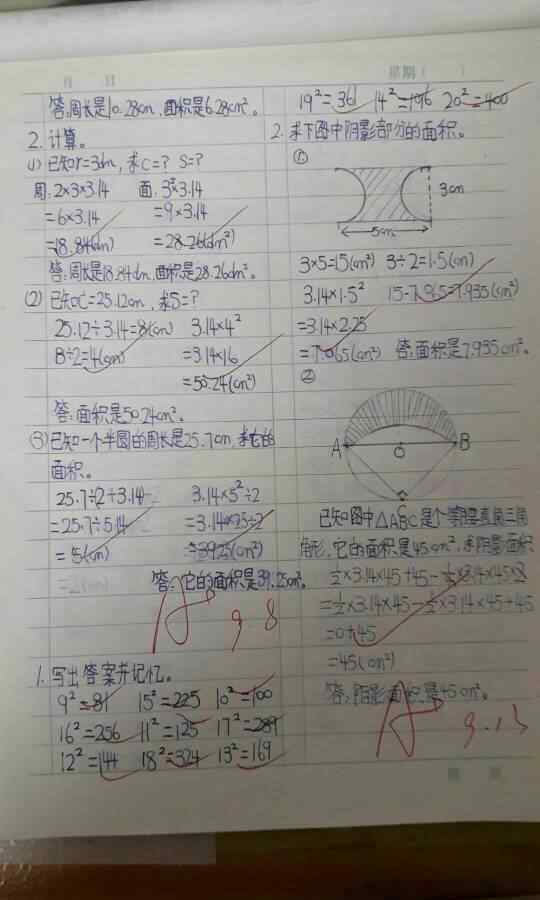 月 日
答:周长是10.28cm,面积是6.28cm²。
2.计算。
(1)已知r=3dm,求C=? S=?
周:2×3×3.14 面:3²×3.14
=6×3.14 =9×3.14
=18.84(dm) =28.26(dm²)
答:周长是18.84dm,面积是28.26dm²。
(2)已知C=25.12cm,求S=?
25.12÷3.14=8(cm) 3.14×4²
8÷2=4(cm) =3.14×16
=50.24(cm²)
答:面积是50.24cm²。
③已知一个半圆的周长是25.7cm,求它的
面积。
25.7÷(2+3.14) 3.14×5²÷2
=25.7÷5.14 =3.14×25÷2
=5(cm) =39.25(cm²)
答:它的面积是39.25cm²。
9.8
1.写出答案并记忆。
9²=81 15²=225 10²=100
16²=256 11²=125 17²=289
12²=144 18²=324 13²=169
星期( )
19²=361 14²=196 20²=400
2.求下图中阴影部分的面积。
①
3cm
5cm
3×5=15(cm²) 3÷2=1.5(cm)
3.14×1.5² 15-7.065=7.935(cm²)
=3.14×2.25
=7.065(cm²) 答:面积是7.935cm²。
②
A O B
C
已知图中△ABC是个等腰直角三角
角形,它的面积是45cm²,求阴影面积
½×3.14×45+45-¼×3.14×45×2
=½×3.14×45-½×3.14×45+45
=0+45
=45(cm²)
答:阴影面积是45cm²。
9.13